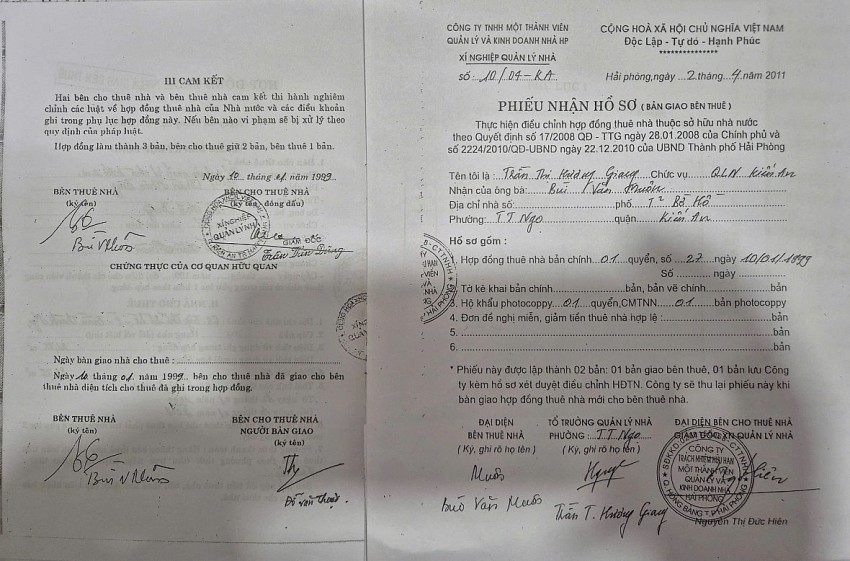 III CAM KẾT
Hai bên cho thuê nhà và bên thuê nhà cam kết thi hành nghiêm
chỉnh các luật về hợp đồng thuê nhà của Nhà nước và các điều khoản
ghi trong phụ lục hợp đồng này. Nếu bên nào vi phạm sẽ bị xử lý theo
quy định của pháp luật.
Hợp đồng làm thành 3 bản, bên cho thuê giữ 2 bản, bên thuê 1 bản.
Ngày 10 tháng 01 năm 1999
BÊN THUÊ NHÀ
(ký tên)
BÊN CHO THUÊ NHÀ
(ký tên đóng dấu)
XÍ NGHIỆP
QUẢN LÝ NHÀ
GIÁM ĐỐC
CHỨNG THỰC CỦA CƠ QUAN HỮU QUAN
Ngày bàn giao nhà cho thuê :
Ngày 10 tháng 01 năm 1999, bên cho thuê nhà đã giao cho bên
thuê nhà diện tích cho thuê đã ghi trong hợp đồng.
BÊN THUÊ NHÀ
(ký tên)
BÊN CHO THUÊ NHÀ
NGƯỜI BÀN GIAO
(ký tên)
CÔNG TY TNHH MỘT THÀNH VIÊN
QUẢN LÝ VÀ KINH DOANH NHÀ HP
XÍ NGHIỆP QUẢN LÝ NHÀ
số: 10/04-KA
CỘNG HOÀ XÃ HỘI CHỦ NGHĨA VIỆT NAM
Độc Lập - Tự do - Hạnh Phúc
Hải phòng, ngày 2 tháng 4 năm 2011
PHIẾU NHẬN HỒ SƠ ( BÀN GIAO BÊN THUÊ )
Thực hiện điều chỉnh hợp đồng thuê nhà thuộc sở hữu nhà nước
theo Quyết định số 17/2008 QĐ - TTG ngày 28.01.2008 của Chính phủ và
số 2224/2010/QĐ-UBND ngày 22.12.2010 của UBND Thành phố Hải Phòng
Tên tôi là: Trần Thị Hương Giang Chức vụ QLN Kiến An
Nhận của ông bà: Bùi Văn
Địa chỉ nhà số: phố
Phường: TT Ngọ quận Kiến An
Hồ sơ gồm :
1. Hợp đồng thuê nhà bản chính 01 quyển, số 27 ngày 10/01/1999
Số ngày
2. Tờ kê khai bản chính bản, bản vẽ chính bản
3. Hộ khẩu photocoppy 01 quyển, CMTNN 01 bản photocoppy
4. Đơn đề nghị miễn, giảm tiền thuê nhà hợp lệ : bản
5. bản
6. bản
* Phiếu này được lập thành 02 bản: 01 bản giao bên thuê, 01 bản lưu Công
ty kèm hồ sơ xét duyệt điều chỉnh HĐTN. Công ty sẽ thu lại phiếu này khi
bàn giao hợp đồng thuê nhà mới cho bên thuê.
ĐẠI DIỆN
BÊN THUÊ NHÀ
( Ký, ghi rõ họ tên )
TỔ TRƯỞNG QUẢN LÝ NHÀ
PHƯỜNG : TT Ngọ
( Ký, ghi rõ họ tên )
ĐẠI DIỆN BÊN CHO THUÊ NHÀ
GIÁM ĐỐC XN QUẢN LÝ NHÀ
CÔNG TY
TRÁCH NHIỆM HỮU HẠN
MỘT THÀNH VIÊN
QUẢN LÝ VÀ
KINH DOANH NHÀ
HẢI PHÒNG
Trần T. Hương Giang
Nguyễn Thị Đức Hiên